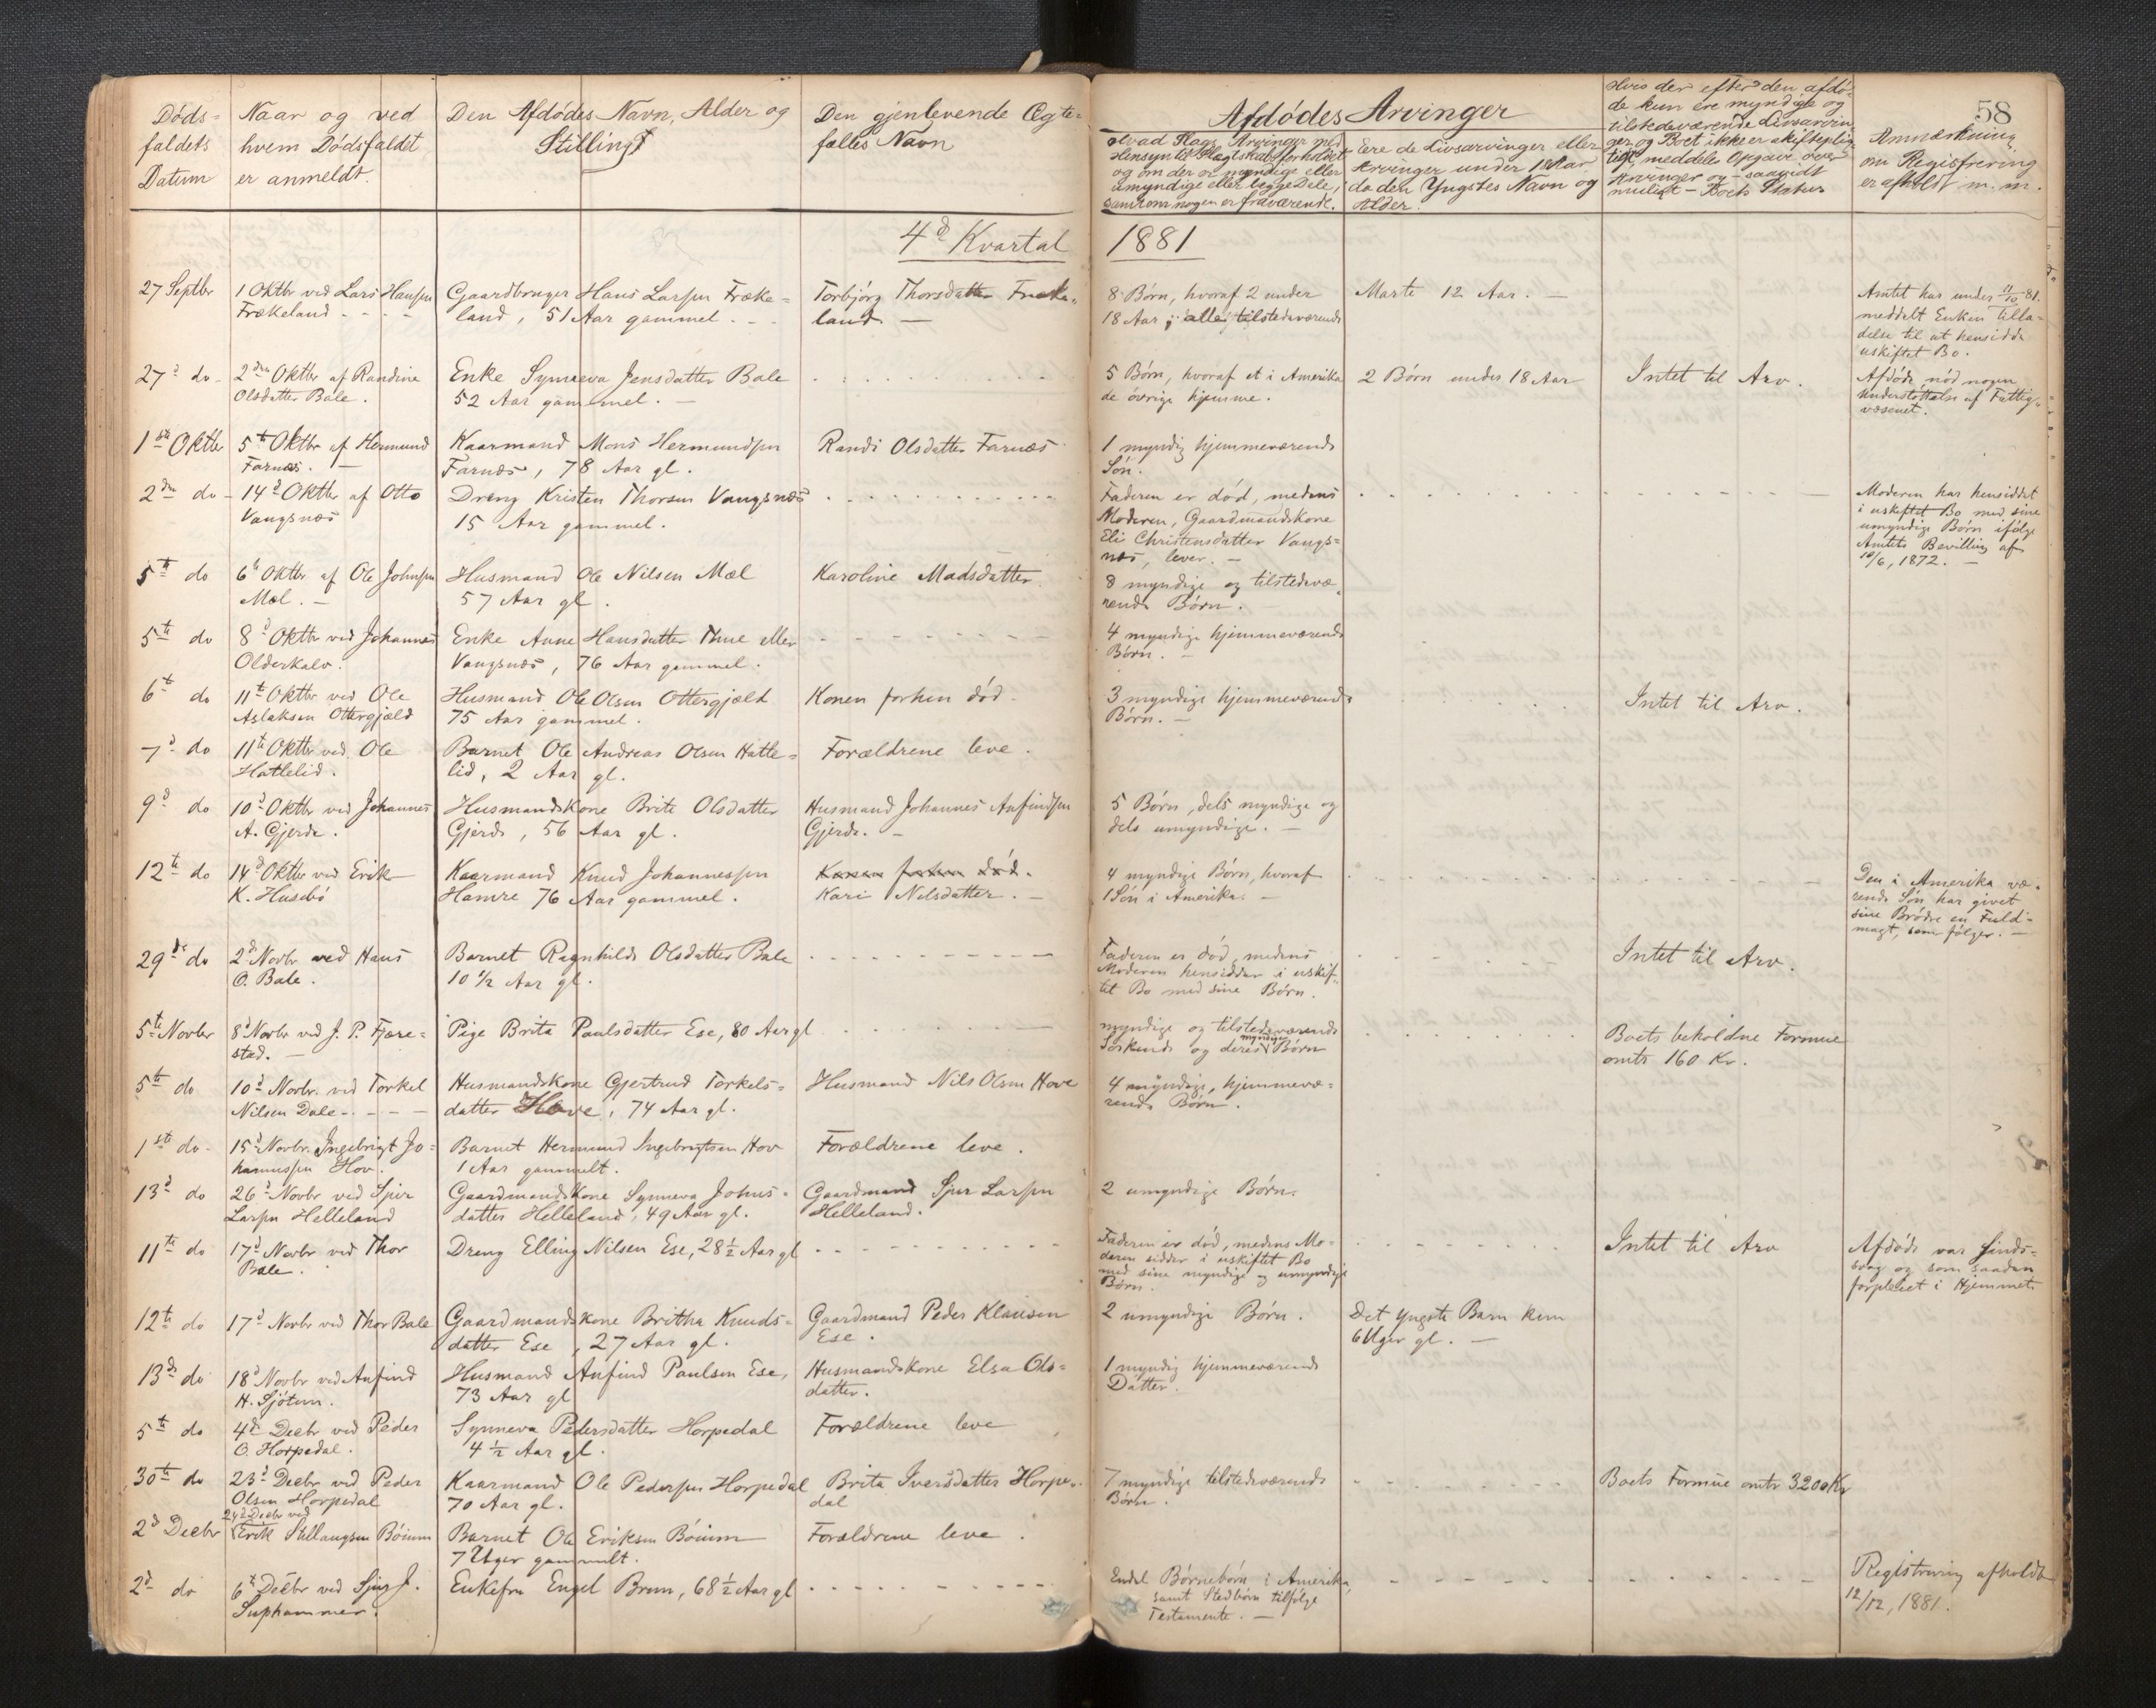 58
Døds-
faldets
Datum
Naar og ved
hvem Dødsfaldet
er anmeldt.
Den Afdødes Navn, Alder og
Stilling
Den gjenlevende Ægte-
fælles Navn
Afdødes Arvinger
Hvad Slags Arvinger med
Hensyn til Slægtskabsforholdet
og om der er myndige eller
umyndige eller begge Dele,
samt om nogen er fraværende.
Ere de Livsarvinger eller
Arvinger under 18 Aar
da den Yngstes Navn og
Alder.
Hvis der efter den afdø-
de kun ere myndige og
tilstedeværende Livsarvin
ger og Boet ikke er skiftepligt-
tigt, meddeles Opgave over
Arvinger og saavidt
muligt - Boets Status
Anmærkning
om Registrering
er afholdt m. m.
4d Kvartal
1881
27 Septbr
1 Oktbr ved Lars Hanssen
Frækeland
Gaardbruger Hans Larssen Fræke-
land, 51 Aar gammel.
Torbjørg Thorsdatter Fræke-
land. —
8 Børn, hvoraf 2 under
18 Aar; alle tilstedeværende
Marte 12 Aar. —
Amtet har under 11/10 81.
meddelt Enken tilla-
delse til at hensidde
uskiftet Bo.
27d do
2den Oktbr af Randine
Olsdatter Bale.
Enke Synneva Jensdatter Bale
52 Aar gammel. —
5 Børn, hvoraf et i Amerika
de øvrige hjemme.
2 Børn under 18 Aar
Intet til Arv.
Afdøde nød nogen
Understøttelse af Fattig-
væsenet.
1ste Oktbr
5te Oktbr af Hermund
Farnæs. —
Kaarmand Mons Hermundssen
Farnæs, 78 Aar gl.
Randi Olsdatter Farnæs
1 myndig hjemmeværende
Søn.
2den do
14d Oktbr af Otto
Vangsnæs
Dreng Kristen Thorsen Vangsnæs
15 Aar gammel.
Faderen er død, medens
Moderen, Gaardmandskone
Eli Christensdatter Vangs-
næs, lever. —
Moderen har hensiddet
i uskiftet Bo med sine
umyndige Børn ifølge
Amtets Bevilling af
10/6, 1872. —
5te do
6te Oktbr. af Ole Johnssen
Mæl. —
Husmand Ole Nilsen Mæl
57 Aar gl.
Karoline Madsdatter
8 myndige og tilstedevæ-
rende Børn.
5te do
8d Oktbr ved Johannes
Olderkalv.
Enke Anne Hansdatter Thue eller
Vangsnæs, 76 Aar gammel.
4 myndige hjemmeværende
Børn. —
6te do
11te Oktbr ved Ole
Aslaksen Ottergjæld
Husmand Ole Olsen Ottergjæld
75 Aar gammel.
Konen forhen død
3 myndige hjemmeværende
Børn. —
Intet til Arv.
7d do
11te Oktbr ved Ole
Hatlelid.
Barnet Ole Andreas Olsen Hatle-
lid, 2 Aar gl.
Forældrene leve.
9d do
10d Oktbr ved Johannes
A. Gjerde.
Husmandskone Brite Olsdatter
Gjerde, 56 Aar gl.
Husmand Johannes Anfindssen
Gjerde. —
5 Børn, dels myndige og
dels umyndige. —
12te do
14d Oktbr ved Erik
K. Husebø
Kaarmand Knud Johannessen
Hamre 76 Aar gammel.
Konen forhen død.
Kari Nilsdatter. —
4 myndige Børn, hvoraf
1 Søn i Amerika. —
Den i Amerika væ-
rende Søn har givet
sine Brødre en Fuld-
magt, som følger. —
29de do
2d Novbr ved Hans
O. Bale.
Barnet Ragnhilde Olsdatter Bale
10 1/2 Aar gl.
Faderen er død, medens
Moderen hensidder i uskif-
tet Bo med sine Børn.
Intet til Arv.
5te Novbr
8d Novbr ved J. P. Fjære-
stad. —
Pige Brita Paulsdatter Ese, 80 Aar gl
myndige og tilstedeværende
Søskende og deres myndige Børn
Boets beholdne Formue
omtr 160 Kr.
5te do
10d Novbr. ved Torkel
Nilsen Dale
Husmandskone Gjertrud Torkels-
datter Hove, 74 Aar gl.
Husmand Nils Olsen Hove
4 myndige, hjemmevæ-
rende Børn.
1ste do
15d Novbr. Ingebrigt Jo-
hannessen Hov.
Barnet Hermund Ingebrigtsen Hov
1 Aar gammelt.
Forældrene leve.
13d do
26d Novbr ved Sjur
Larssen Helleland
Gaardmandskone Synneva Johns-
datter Helleland, 49 Aar gl.
Gaardmand Sjur Larssen
Helleland.
2 umyndige Børn.
11te do
17d Novbr ved Thor
Bale.
Dreng Elling Nilsen Ese, 28 1/2 Aar gl
Faderen er død, medens Mo-
deren sidder i uskiftet Bo
med sine myndige og umyndige
Børn.
Intet til Arv
Afdøde var sinds-
svag og som saadan
forpleiet i Hjemmet.
12te do
17d Novbr ved Thor Bale
Gaardmandskone Britha Knuds-
datter Ese, 27 Aar gl.
Gaardmand Peder Klausen
Ese.
2 umyndige Børn.
Det yngste Barn kun
6 Uger gl. —
13de do
18d Novbr ved Anfind
H. Sjøtun.
Husmand Anfind Paulsen Ese,
73 Aar gl
Husmandskone Elsa Ols-
datter.
1 myndig hjemmeværende
Datter.
5te do
4de Decbr ved Peder
O. Horpedal.
Synneva Pedersdatter Horpedal
4 1/2 Aar gl.
Forældrene leve
30te do
23d Decbr ved Peder
Olsen Horpedal
Kaarmand Ole Pederssen Horpedal
70 Aar gl.
Brita Iversdatter Horpe-
dal
7 myndige tilstedeværende
Børn.
Boets Formue omtr 3200 Kr
2d Decbr
24d Decbr ved
Erik Stellaugsen Bøium
Barnet Ole Eriksen Bøium
7 Uger gammelt.
Forældrene leve.
2d do
6te Decbr ved Sjur J.
Suphammer.
Enkefru Engel Brun, 68 1/2 Aar gl
Endel Børnebørn i Amerika,
samt Stedbørn tilfølge
Testamente. —
Registrering afholdt
12/12, 1881.